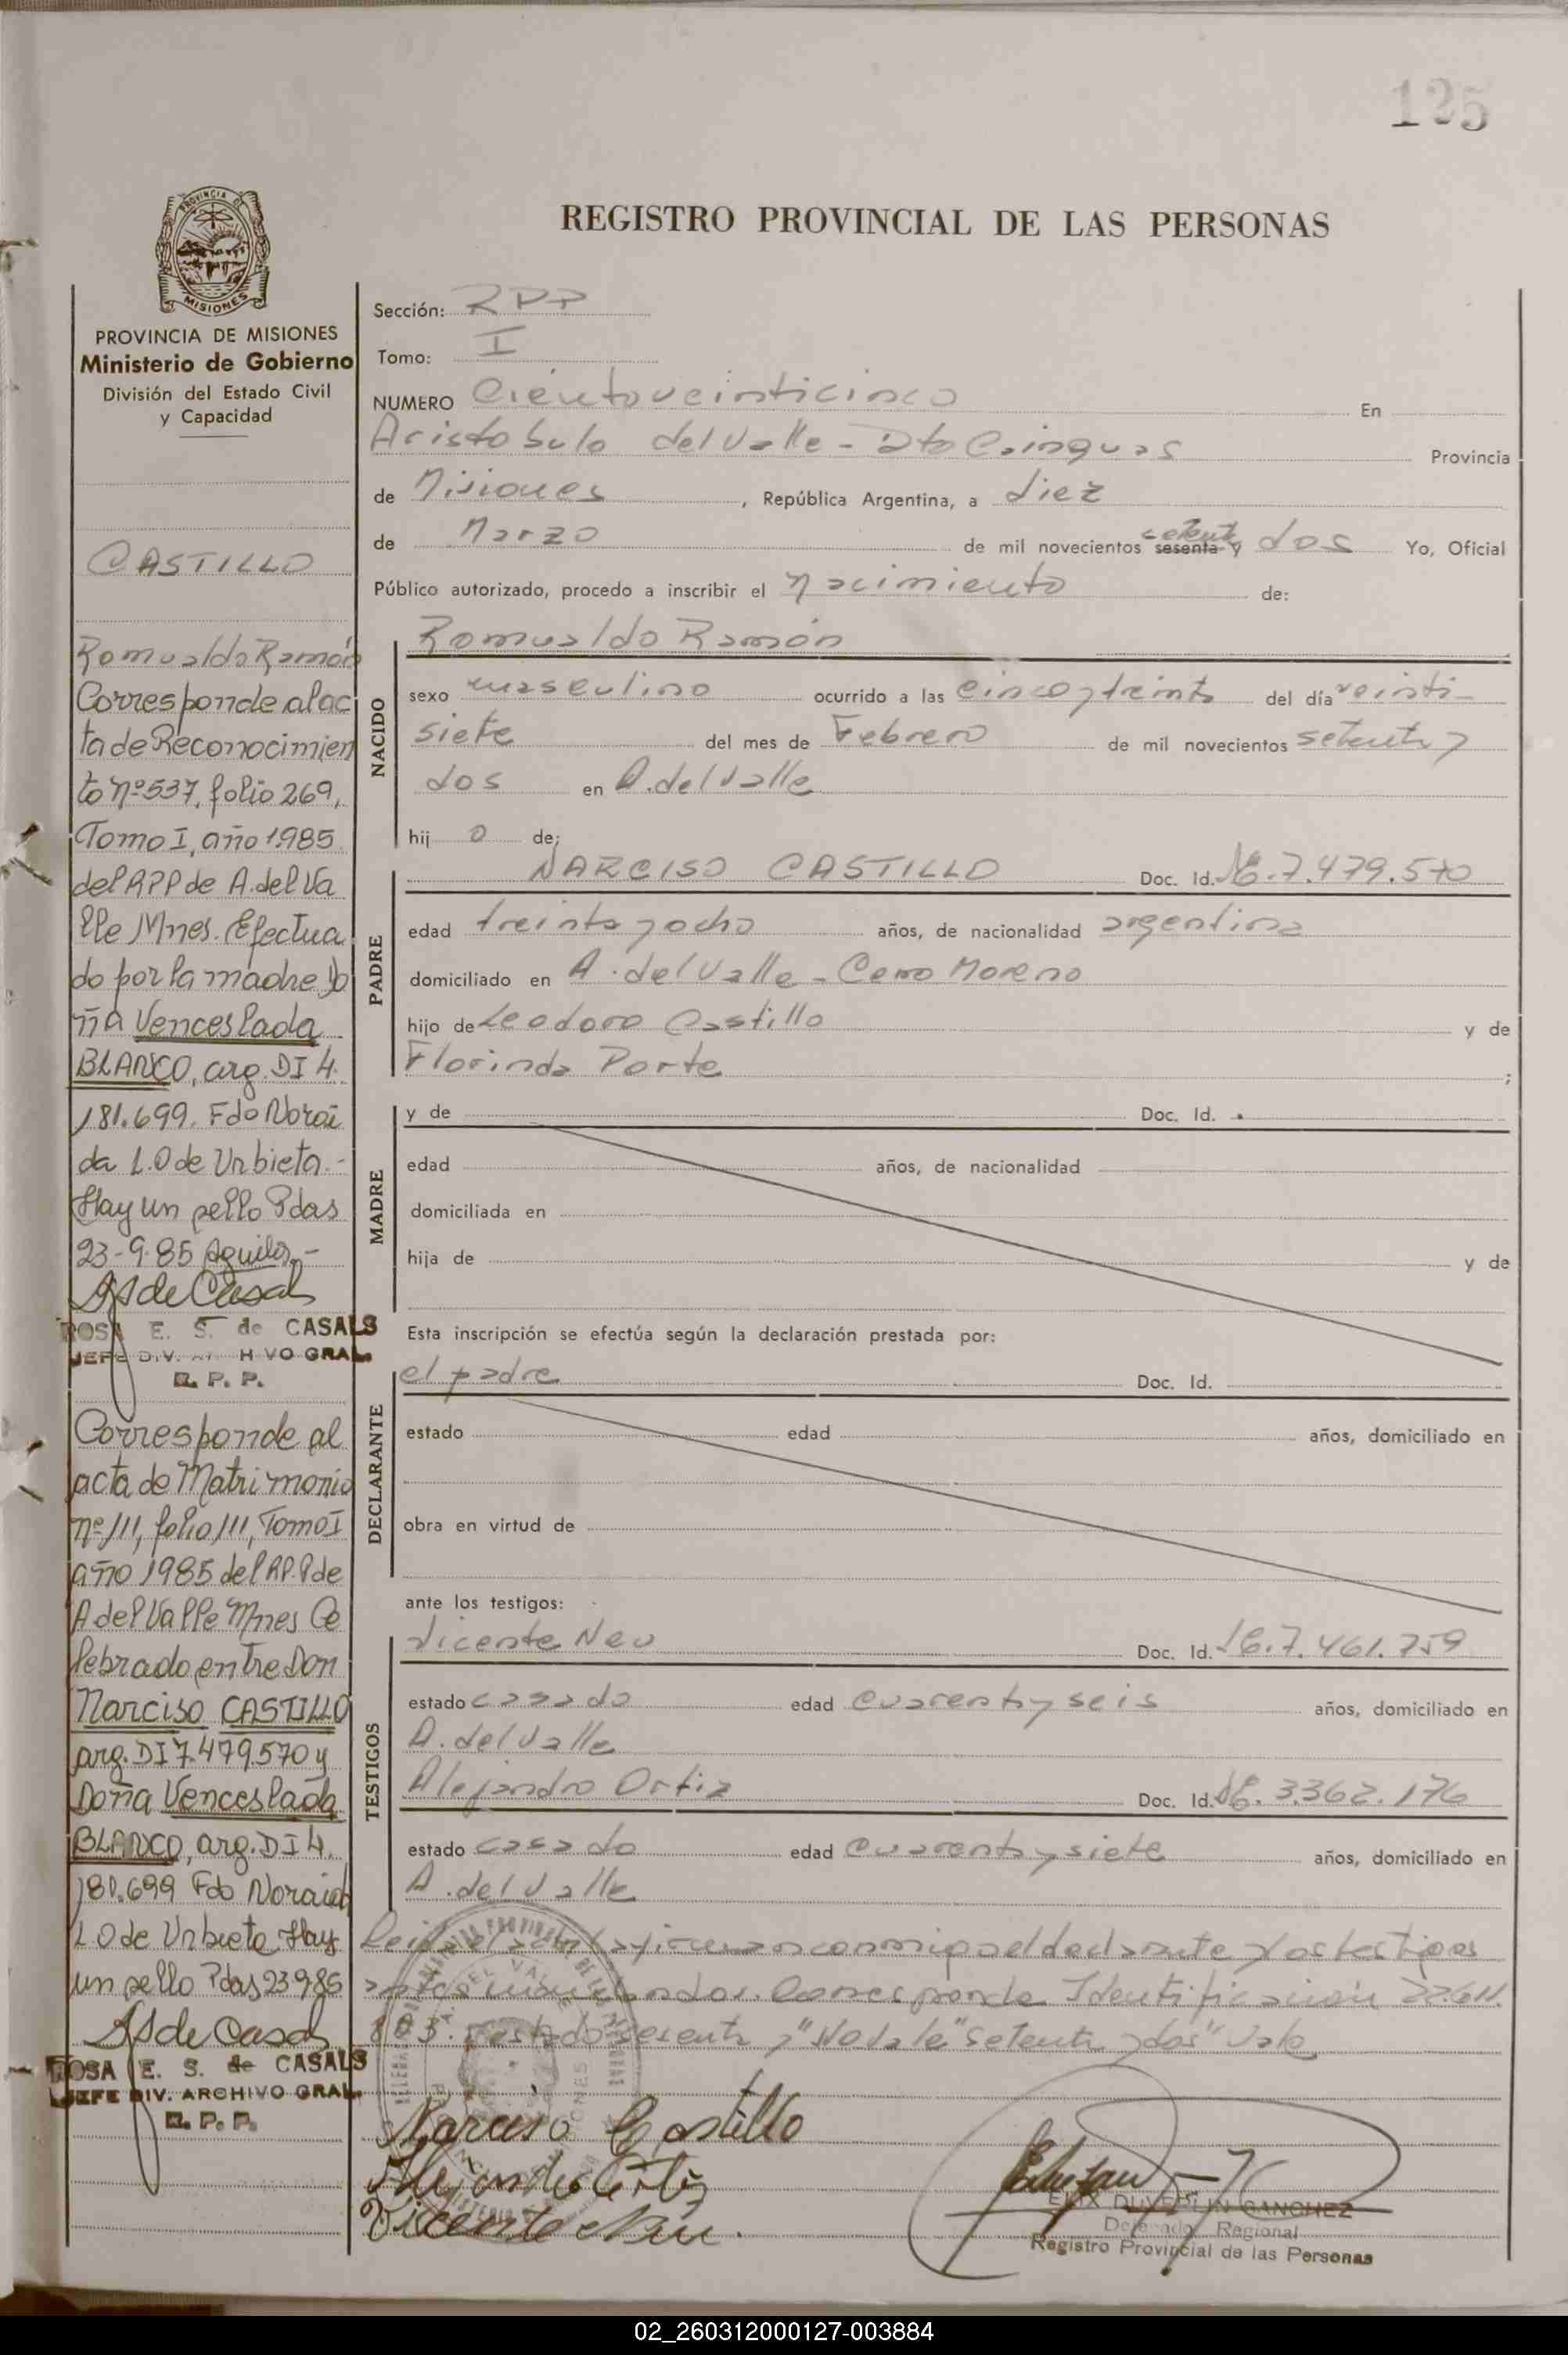 125
REGISTRO PROVINCIAL DE LAS PERSONAS
PROVINCIA DE MISIONES
MISIONES
PROVINCIA DE MISIONES
Ministerio de Gobierno
División del Estado Civil
y Capacidad
CASTILLO
Romualdo Ramón
Corresponde al ac
ta de Reconocimien
to nº 537, folio 269,
Tomo I, año 1985
del RPP de A. del Va
lle Mnes. Efectua
do por la madre Do
ña Venceslada
BLANCO, arg. DI 4.
181.699. Fdo Norai
da L.O de Urbieta.-
Hay un sello Pdas
23-9-85 Aguilar.-
ROSA E. S. de CASALS
JEFE DIV. ARCHIVO GRAL.
R. P. P.
Corresponde al
acta de Matrimonio
nº 111, folio 111, Tomo I
año 1985 del RP.P de
A del Valle Mnes Ce
lebrado entre Don
Narciso CASTILLO
arg. DI 7.479.570 y
Doña Venceslada
BLANCO, arg. DI 4.
181.699 Fdo Noraida
L O de Urbieta Hay
un sello Pdas 23 9 85
ROSA E. S. de CASALS
JEFE DIV. ARCHIVO GRAL.
R. P. P.
Sección: RPP
Tomo: I
NUMERO Ciento veinticinco En
Aristobulo del Valle - Dto Cainguas Provincia
de Misiones, República Argentina, a diez
de Marzo de mil novecientos sesenta setenta y dos Yo, Oficial
Público autorizado, procedo a inscribir el nacimiento de:
NACIDO
Romualdo Ramón
sexo masculino ocurrido a las cinco y treinta del día veinti-
siete del mes de Febrero de mil novecientos setenta y
dos en A. del Valle
hij o de;
PADRE
NARCISO CASTILLO Doc. Id. M. 7.479.570
edad treinta y ocho años, de nacionalidad argentina
domiciliado en A. del Valle - Cerro Moreno
hijo de Leodoro Castillo y de
Florinda Porte ;
MADRE
y de Doc. Id.
edad años, de nacionalidad
domiciliada en
hija de y de
Esta inscripción se efectúa según la declaración prestada por:
DECLARANTE
el padre Doc. Id.
estado edad años, domiciliado en
obra en virtud de
ante los testigos:
TESTIGOS
Vicente Neu Doc. Id. M. 7.461.759
estado casado edad cuarenta y seis años, domiciliado en
A. del Valle
Alejandro Ortiz Doc. Id. M. 3.362.176
estado casado edad cuarenta y siete años, domiciliado en
A. del Valle
Leida el acta la firman conmigo el declarante y los testigos
antes mencionados. Corresponde Identificación 22.611.
803. Testado sesenta y "No vale" "setenta y dos" Vale
Narciso Castillo
Alejandro Ortiz
Vicente Neu.
Delegado Regional
Registro Provincial de las Personas
02_260312000127-003884